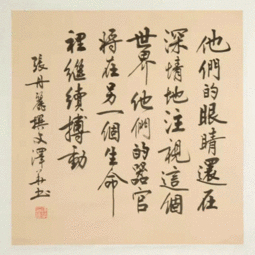 他們的眼睛還在
深情地注視這個
世界 他們的器官
將在另一個生命
裡繼續搏動
張丹篱撰文澤兵书